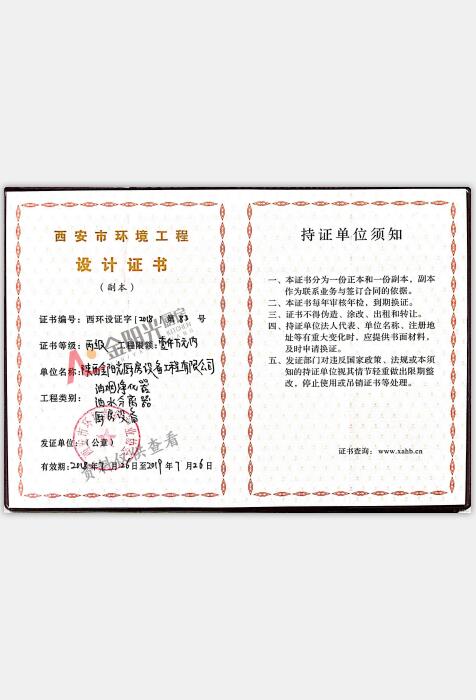 西安市环境工程
设计证书
（副本）
证书编号：西环设证字[2018]第183号
证书等级：丙级 工程限额：壹佰万元内
单位名称：陕西金阳光厨房设备工程有限公司
工程类别：油烟净化器
油水分离器
厨房设备
发证单位：（公章）
有效期：2018年7月26日至2019年7月26
金阳光厨房
资料仅供查看
持证单位须知
一、本证书分为一份正本和一份副本，副本
作为联系业务与签订合同的依据。
二、本证书每年审核年检，到期换证。
三、证书不得伪造、涂改、出租和转让。
四、持证单位法人代表、单位名称、注册地
址等有重大变化时，应提供书面材料，
及时申请换证。
五、发证部门对违反国家政策、法规或本须
知的持证单位视其情节轻重做出限期整
改，停止使用或吊销证书等处理。
证书查询：www.xahb.cn